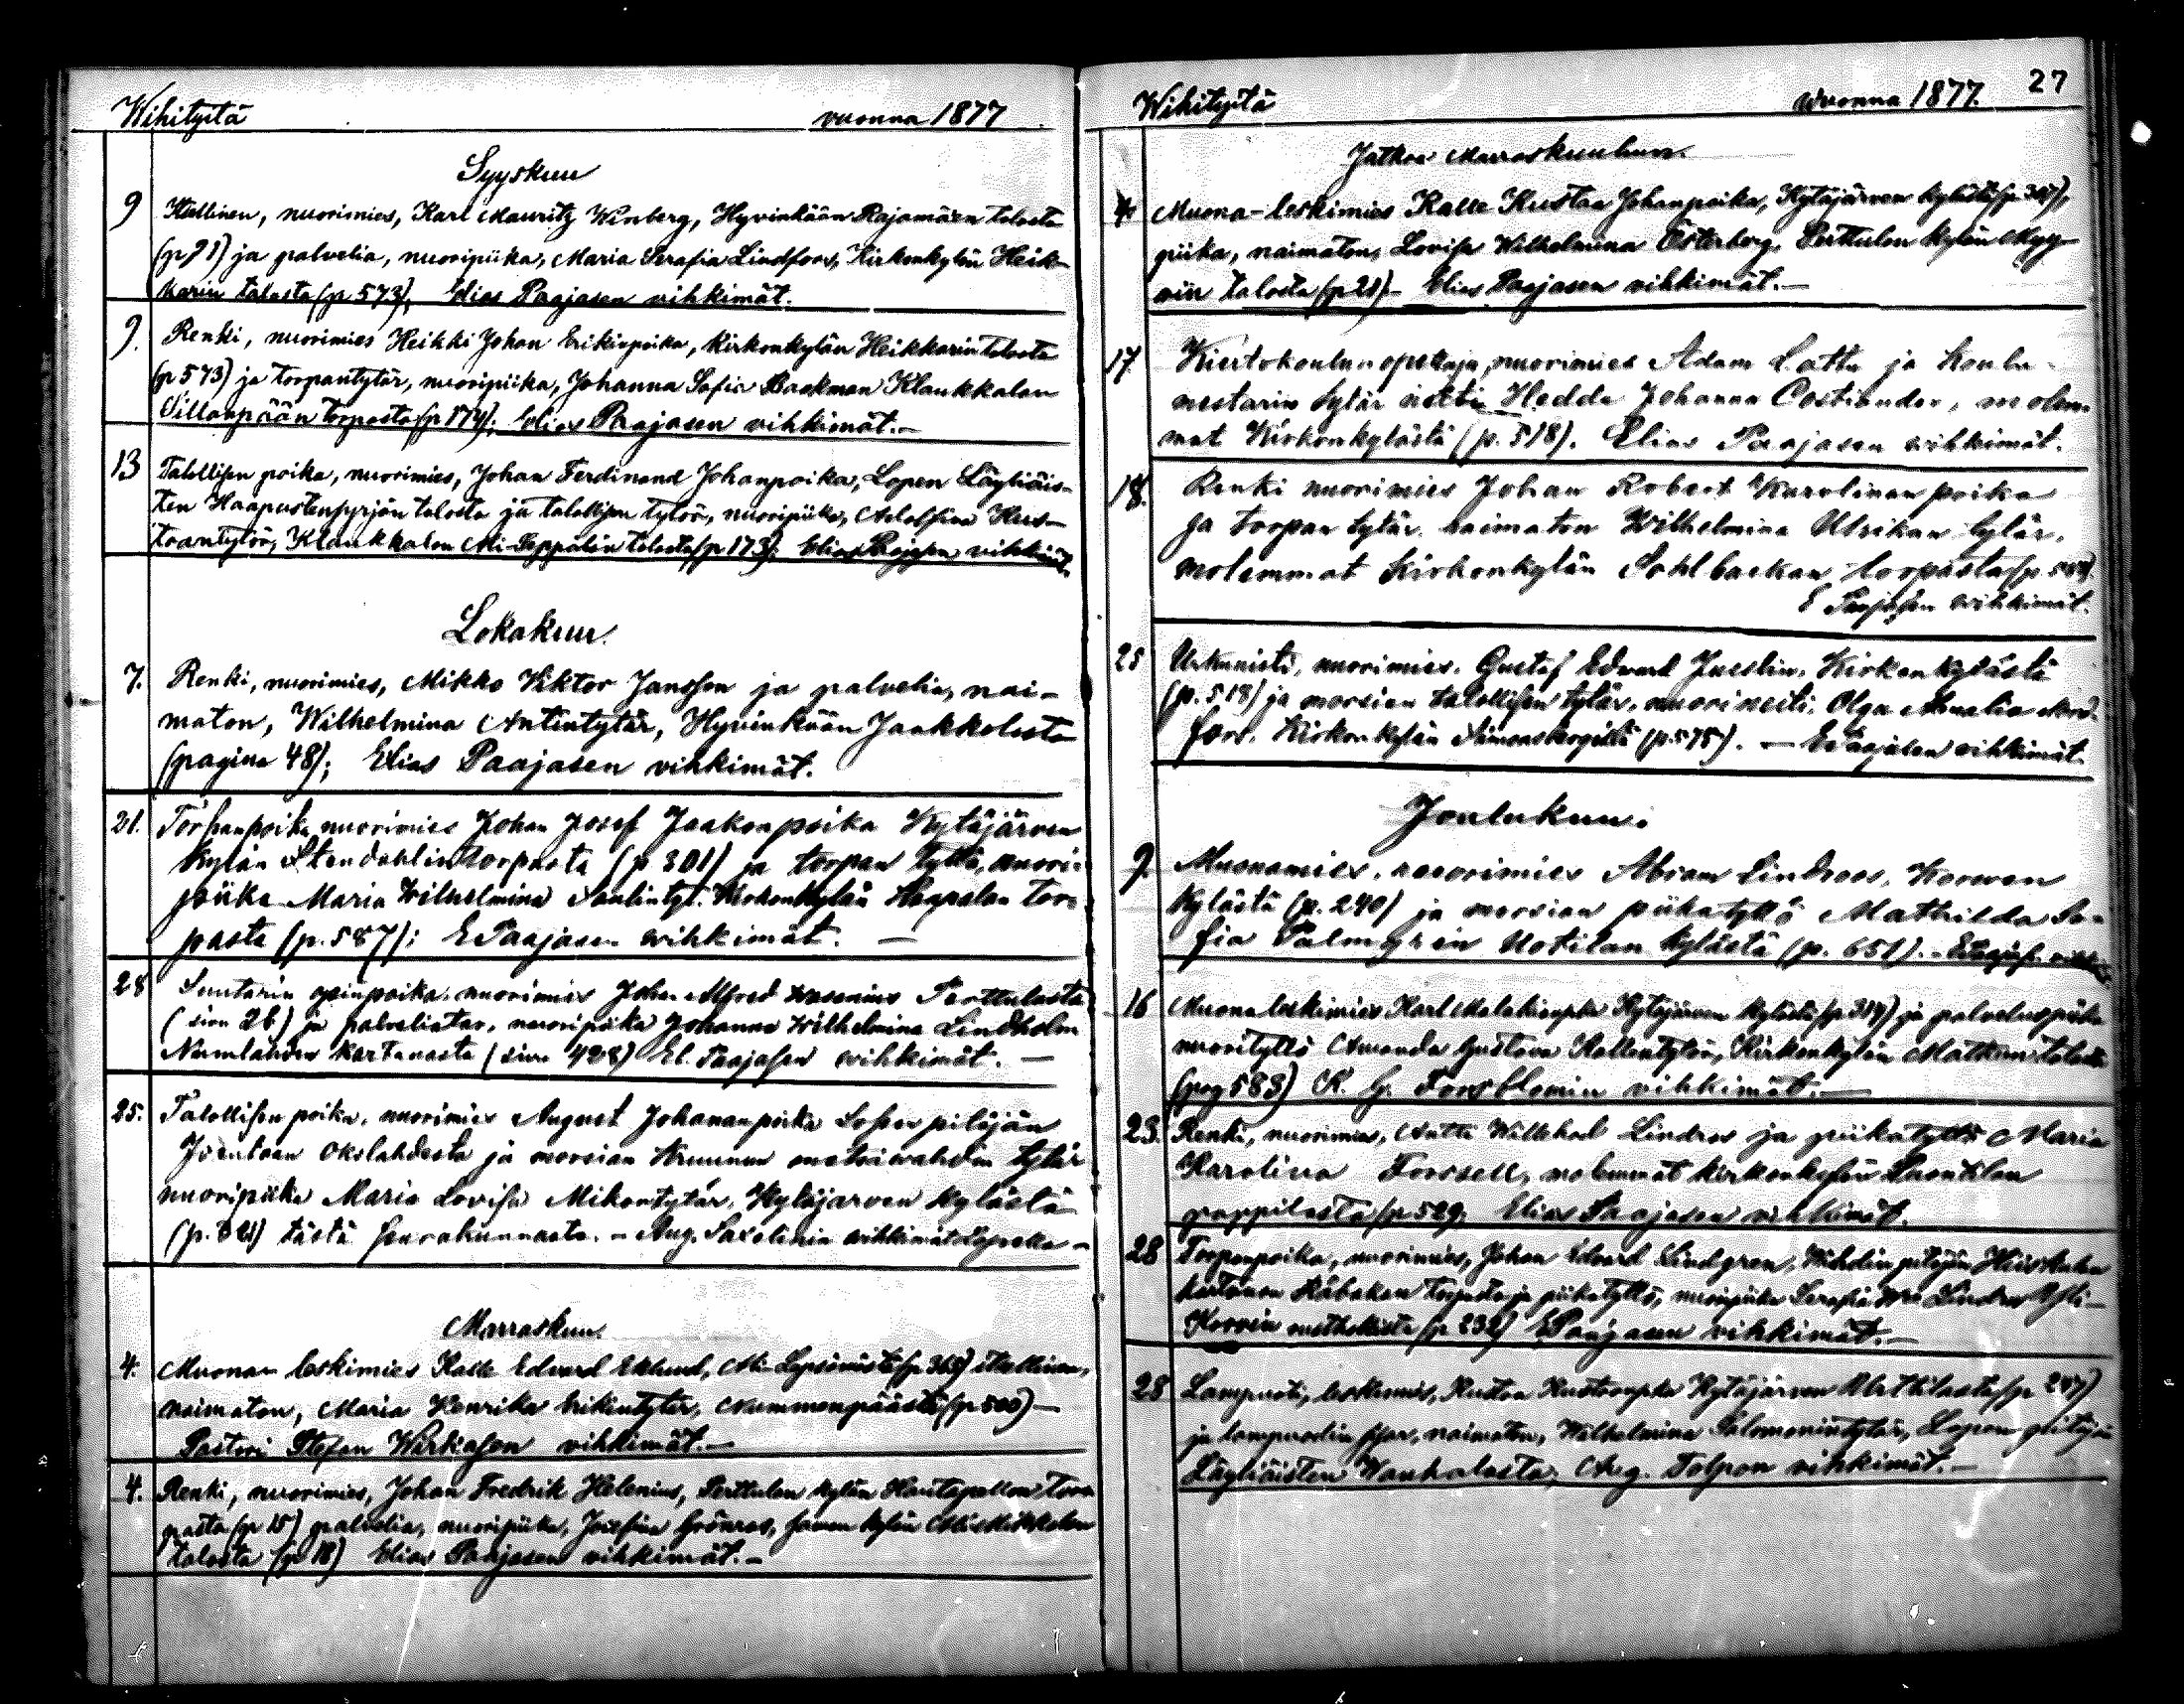 Wihityitä vuonna 1877
Syyskuu
9 Itsellinen, nuorimies, Karl Mauritz Winberg, Hyvinkään Rajamäen talosta
(p 71) ja palvelia, nuoripiika, Maria Serafia Lindfors, Kirkonkylän Heik-
karin talosta (p. 573); Elias Paajasen vihkimät.
9. Renki, nuorimies Heikki Johan Erikinpoika, Kirkonkylän Heikkarin talosta
(p 573) ja torpantytär, nuoripiika, Johanna Sofia Backman Klaukkalan
Sillanpään torpasta (p 174); Elias Paajasen vihkimät.—
13 Talollisen poika, nuorimies, Johan Ferdinand Johanpoika, Lopen Läyliäis-
ten Haapastensyrjän talosta ja talollisen tytär, nuoripiika, Adolfina Kus-
taantytär, Klaukkalan Ali-Seppälän talosta (p 173); Elias Paajasen vihkimät.
Lokakuu.
7. Renki, nuorimies, Mikko Viktor Jansson ja palvelia, nai-
maton, Wilhelmina Antintytär, Hyvinkään Jaakkolasta
(pagina 48); Elias Paajasen vihkimät.
21. Torpanpoika nuorimies Johan Josef Jaakonpoika Kytäjärven
kylän Stendahlin torpasta (p 301) ja torpan tyttö, nuori-
piika Maria Wilhelmina Paulintyt. Kirkonkylän Haapalan tor-
pasta (p. 587); E Paajasen wihkimät. —
28 Suutarin opinpoika, nuorimies Johan Alfred Wasenius Perttulasta
(sivu 26) ja palveliatar, nuoripiika Johanna Wilhelmina Lindholm
Numlahden kartanosta (sivu 428) El. Paajasen wihkimät. —
25. Talollisen poika, nuorimies August Johananpoika Lopen pitäjän
Joentaan Okslahdesta ja morsian Kruunun metsäwahdin tytär
nuoripiika Maria Lovisa Mikontytär, Kytäjärven kylästä
(p. 321) tästä seurakunnasta. — Aug. Saxelinin wihkimät Lopella —
Marraskuu.
4. Muona- leskimies Kalle Edvard Eklund, Ali-Lepsämästä (p 363) itsellinen,
naimaton, Maria Henrika Erikintytär, Nummenpäästä (p 500) —
Pastori Stefan Wirkasen vihkimät.—
4. Renki, nuorimies, Johan Fredrik Helenius, Perttulan kylän Hautapellon tor-
pasta (p 15) palvelia, nuoripiika, Josefina Grönroos, saman kylän Ali-Mikkolan
talosta (p 18) Elias Paajasen vihkimät.—
Wihityitä wuonna 1877. 27
Jatkoa Marraskuuhun.
4 Muona-leskimies Kalle Kustaa Johanpoika, Kytäjärven kylästä (p 347),
piika, naimaton, Lovisa Wilhelmina Österberg, Perttulan kylän Myy-
rin talosta (p 21)— Elias Paajasen vihkimät.—
17. Kiertokoulun opettaja, nuorimies Adam Latta ja koulu-
mestarin tytär neiti Hedda Johanna Costiander, molem-
mat Kirkonkylästä (p. 518). Elias Paajasen wihkimät.
18. Renki nuorimies Johan Robert Karolinan poika
ja torpan tytär naimaton Wilhelmina Ulrikan tytär,
molemmat Kirkonkylän Sahlbackan torpasta
E Paajasen wihkimät.
25 Urkunisti, nuorimies, Gustaf Edward Juselius, Kirkonkylästä
(p. 518) ja morsian talollisen tytär, nuori neiti, Olga Amalia Nord-
fors, Kirkonkylän (p. 575). — E Paajasen wihkimät.
Joulukuu.
9. Muonamies, nuorimies Abram Lindroos, Korwen
kylästä (p. 240) ja morsian piikatyttö Mathilda So-
fia Palmgren Uotilan kylästä (p. 651). — E Paajas. wihk.
16 Muona leskimies Karl Malakianpka Kytäjärven kylästä (p 319) ja palveluspiika
nuorityttö Amanda Gustava Kallentytär, Kirkonkylän Mattan talosta
(pag 583) K. G. Forsblomin vihkimät.—
23. Renki, nuorimies, Antti Willehad Lindros ja piikatyttö Maria
Karolina Forssell, molemmat kirkonkylän Suontilan
pappilasta (p 529; Elias Paajasen vihkimät.
28 Torpanpoika, nuorimies, Johan Edvard Lindgren, Wihdin pitäjän Hiiskulan
kartanon Råbackan torpasta ja piikatyttö, nuoripiika Serafia Wa Lindros Yli-
Korven (p 232) E Paajasen vihkimät.—
28 Lampuoti, leskimies, Kustaa Kustaanpka Kytäjärven (p 247)
ja lampuodin sisar, naimaton, Wilhelmina Salomonintytär, Lopen pitäjän
Läyliäisten Wanhalasta; Aug. Tolpon vihkimät.—